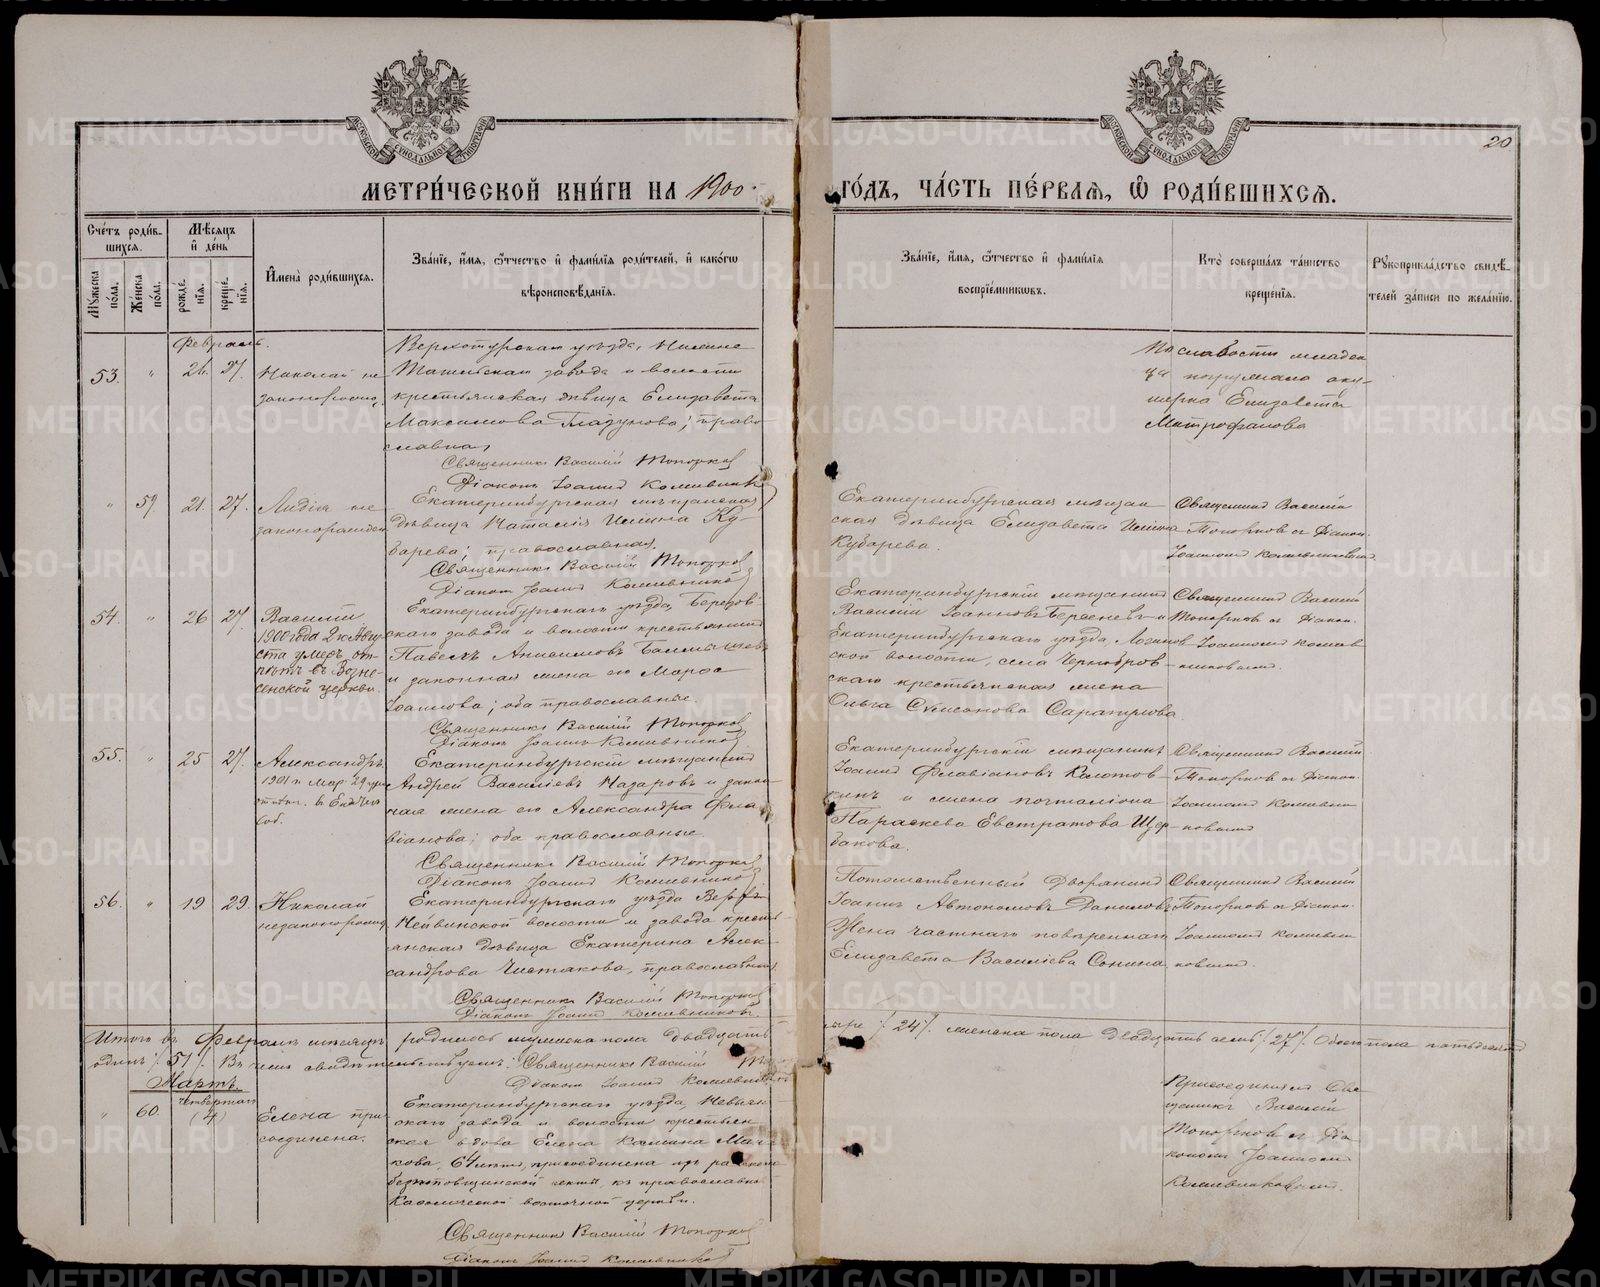 МЕТРИ́ЧЕСКОЙ КНИ́ГИ НА 1900
ГО́ДЪ, ЧА́СТЬ ПЕ́РВАѦ, Ѽ РОДИ́ВШИХСѦ.
20
Сче́тъ роди́вшихсѧ.
Му́жеска по́ла.
Же́нска по́ла.
Мѣ́сѧцъ и҆ де́нь
рожде́нїѧ.
креще́нїѧ.
И҆мена̀ роди́вшихсѧ.
Зва́нїе, и҆́мѧ, ѻ҆́тчество и҆ фами́лїѧ роди́телей, и҆ како́гѡ
вѣроисповѣ́данїѧ.
Зва́нїе, и҆́мѧ, ѻ҆́тчество и҆ фами́лїѧ
воспрїе́мникѡвъ.
Кто̀ соверша́лъ та́инство
креще́нїѧ.
Рꙋкоприкла́дство свидѣ́
телей за́писи по жела́нїю.
Февраль.
53. " 26. 27. Николай не
законорожд.
Верхотурскаго уѣзда, Нижне
Тагильскаго завода и волости
крестьянская дѣвица Елизавета
Максимова Глазунова; право-
славная
Священникъ Василій Топорков
Діаконъ Іоаннъ Кожевник
По слабости младен
ца погружала аку-
шерка Елизавета
Митрофанова
" 59. 21. 27. Лидія не
законорожден
Екатеринбургская мѣщанская
дѣвица Наталія Ильина Ку-
барева; православная.
Священникъ Василій Топорков
Діаконъ Іоаннъ Кожевников
Екатеринбургская мѣщан
ская дѣвица Елизавета Ильина
Кубарева.
Священникъ Василій
Топорков съ діакон.
Іоанномъ Кожевниковым
54. " 26 27. Василій
1900 года 2го Авгу
ста умеръ, от-
пѣтъ въ Возне-
сенской церкви.
Екатеринбургскаго уѣзда, Березов-
скаго завода и волости крестьянинъ
Павелъ Анисимовъ
и законная жена его
оба православные.
Священникъ Василій Топорков
Діаконъ Іоаннъ Кожевников
Екатеринбургскій мѣщанинъ
Василій Іоанновъ Береневъ и
Екатеринбургскаго уѣзда,
ской волости, села Чернобров-
скаго крестьянская жена
Ольга Сарапулова
Священникъ Василій
Топорков съ діакон.
Іоанномъ Кожев
никовымъ.
55. " 25 27. Александръ
Екатеринбургскій мѣщанинъ
Андрей Васильевъ Назаровъ и закон-
ная жена его Александра Фла-
віанова; оба православные
Священникъ Василій Топорков
Діаконъ Іоаннъ Кожевников
Екатеринбургскій мѣщанинъ
Іоаннъ Флавіановъ Колотов-
кинъ и жена почталіона
Параскева Евстратова Щер-
бакова.
Священникъ Василій
Топорков съ діакон.
Іоанномъ Кожевни
ковымъ
56. " 19 29. Николай
незаконорожд
Екатеринбургскаго уѣзда Верхъ-
Нейвинской волости и завода кресть-
янская дѣвица Екатерина Алек-
сандрова Чистякова, православная
Священникъ Василій Топорков
Діаконъ Іоаннъ Кожевников.
Потомственный Дворянинъ
Іоаннъ Автономовъ Даниловъ
Жена частнаго повѣреннаго
Елизавета Василіева Сонина
Священникъ Василій
Топорков съ діакон.
Іоанномъ Кожевни
ковымъ.
Итого въ Февралѣ мѣсяцѣ родилось мужеска пола двадцать
/24/. женска пола двадцать семь /27/. Обоего пола пятьдесятъ
одинъ /51/. Въ чемъ свидѣтельствуемъ: Священникъ Василій
Діаконъ Іоаннъ Кожевников
Мартъ.
" 60. четвертаго
(4) Елена при-
соединена.
Екатеринбургскаго уѣзда, Невьян-
скаго завода и волости крестьян-
ская вдова Елена Козмина
кова, 64 лѣтъ, присоединена изъ раскола
безпоповщинской секты, къ православной
Каѳолической восточной церкви.
Священникъ Василій Топорков
Діаконъ Іоаннъ Кожевников
Присоединялъ Свя
щенникъ Василій
Топорков съ діа
кономъ Іоанномъ
Кожевниковымъ.